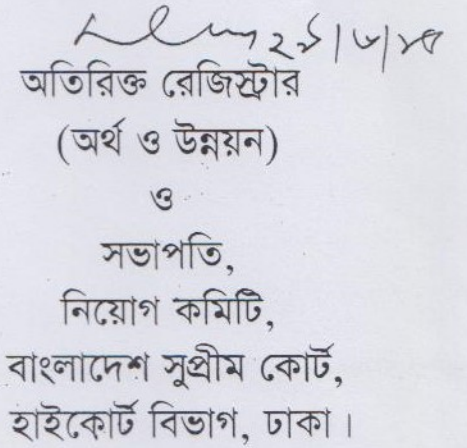 অতিরিক্ত রেজিস্ট্রার
(অর্থ ও উন্নয়ন)
ও
সভাপতি,
নিয়োগ কমিটি,
বাংলাদেশ সুপ্রীম কোর্ট,
হাইকোর্ট বিভাগ, ঢাকা।